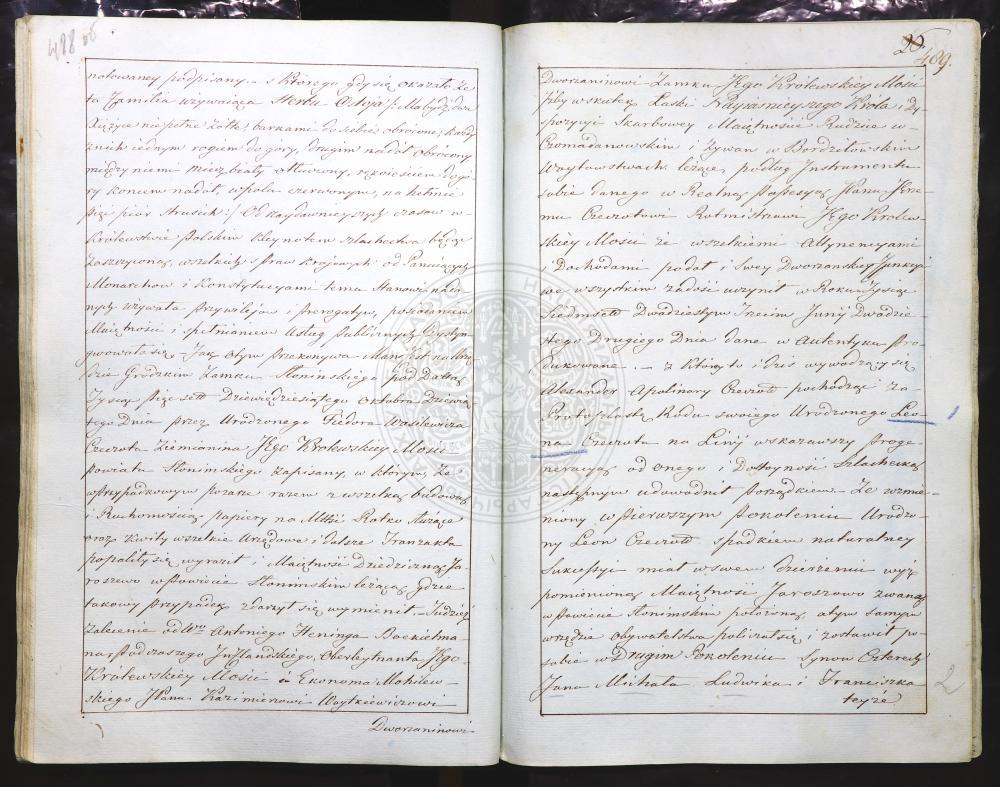 488 об
notowaney podpisany. – s którego gdy się okazało że
ta Familia używaiąca Herbu Ostoja /: Ma bydź dwa
Xiężyca niepełne żółte, barkami do siebie obrócone, każdy
z nich iednym rogiem do góry, drugim nadół obrócony
między niemi miecz biały otłuczony, rękoieścią do gó-
ry końcem nadół, w polu czerwonym, na hełmie
pięć piór strusich :/ Od naydawnieyszych czasow w
Królewstwie Polskim kleynotem szlachectwa będąc
zaszczyconą, wszelkich z praw kraiowych od Panuiących
Monarchow i Konstytucyami temu Stanowi nada-
nych używała Przywileiow i Prerogatyw, posiadaniem
Maiętności i pełnianiem Usług Publicznych Dystyn
gwowała się. Jak o tym przekonywa Manifest na Urzę
dzie Grodzkim Zamku Słonimskiego pod Datą
Tysiąc Pięćsett Dziewiędziesiątego Oktobra Dziewią
tego Dnia przez Urodzonego Fiedora Wasilewicza
Czeczota Ziemianina Jego Królewskiey Mości
Powiatu Słonimskiego zapisany, w którym, że
w Przypadkowym pożarze razem z wszelką budową
i Ruchomością papiery na Mttść Rotko służące
oraz kwity wszelkie Urzędowe i dalsze Tranzakta
popaliły się wyraził i Maiętność Dziedziczną Ja-
roszewo w Powiecie Słonimskim leżącą, gdzie
takowy Przypadek zdarzył się wymienił. – Tudzież
Zalecenie od Wgo Antoniego Heninga Bockielma-
na Podczaszego Inflandskiego, Oberleytnanta Jego
Królewskiey Mości á Ekonoma Mohilew-
skiego JPanu Kazimierzowi Woytkiewiczowi
Dworzaninowi
20
489.
Dworzaninowi Zamku Jego Królewskiey Mości
iżby w skutek Łaski Nayiaśnieyszego Króla i Dy
spozycyi Skarbowey Maiętnoście Rudzice w
Czomadanowskim i Żywan w Bordziłowskim
Woytowstwach leżące, podług Instrumentu
sobie danego w Realną Possesyą JPanu Jene
mu Czeczotowi Rotmistrzowi Jego Królew-
skiey Mości ze wszelkiemi Attynencyami
i Dochodami podał i swey Dworzanskiey Funkcyi
we wszystkim zadość uczynił w Roku Tysiąc
Siedmsett Dwudziestym Trzecim Junij Dwudzie-
stego Drugiego Dnia dane w Autentyku Pro-
dukowane. – z których i dziś wywodzący się
Alexander Apolinary Czeczott pochodząc za
Protoplastę Rodu swoiego Urodzonego Leo-
na Czeczota na Linij wskazawszy Proge-
neracyą od onego i Dostoyność Szlachecką
następnym udowadnił porządkiem. – Że wzmie-
niony w Pierwszym Pokoleniu Urodzo-
ny Leon Czeczott spadkiem naturalney
Sukcessyi miał w swem dzierżeniu wyż
pomienioną Maiętność Jaroszowo zwaną
w Powiecie Słonimskim położoną, a tym samym
w rzędzie obywatelstwa policzał się, i zostawił po
sobie w Drugim Pokoleniu Synow Czterech
Jana Michała Ludwika i Franciszka
teyże
2